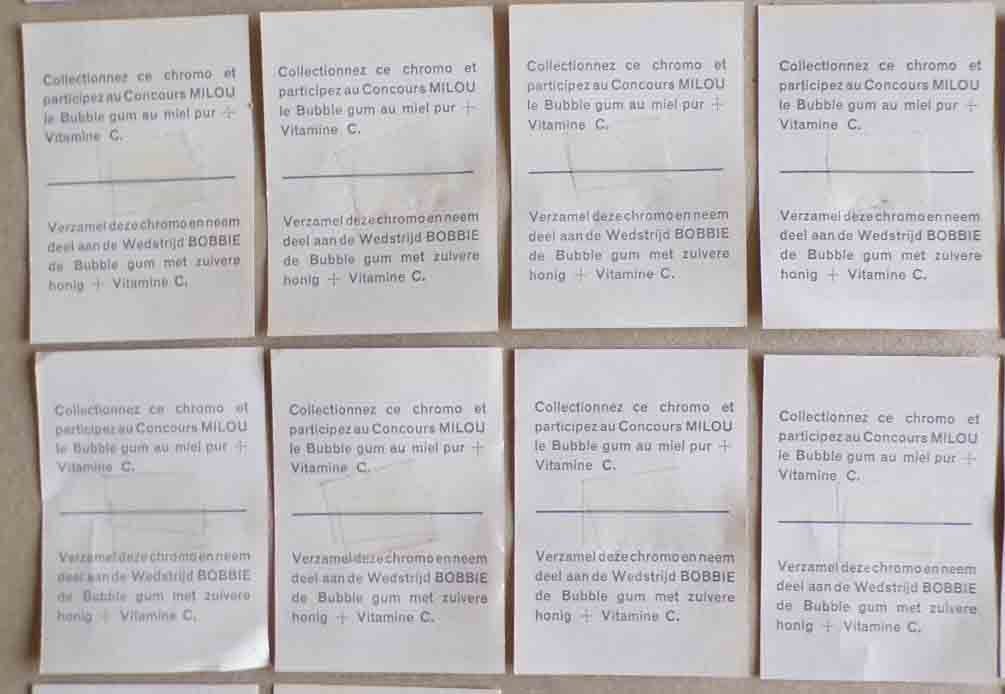 Collectionnez ce chromo et
participez au Concours MILOU
le Bubble gum au miel pur +
Vitamine C.
Verzamel deze chromo en neem
deel aan de Wedstrijd BOBBIE
de Bubble gum met zuivere
honig + Vitamine C.
Collectionnez ce chromo et
participez au Concours MILOU
le Bubble gum au miel pur +
Vitamine C.
Verzamel deze chromo en neem
deel aan de Wedstrijd BOBBIE
de Bubble gum met zuivere
honig + Vitamine C.
Collectionnez ce chromo et
participez au Concours MILOU
le Bubble gum au miel pur +
Vitamine C.
Verzamel deze chromo en neem
deel aan de Wedstrijd BOBBIE
de Bubble gum met zuivere
honig + Vitamine C.
Collectionnez ce chromo et
participez au Concours MILOU
le Bubble gum au miel pur +
Vitamine C.
Verzamel deze chromo en neem
deel aan de Wedstrijd BOBBIE
de Bubble gum met zuivere
honig + Vitamine C.
Collectionnez ce chromo et
participez au Concours MILOU
le Bubble gum au miel pur +
Vitamine C.
Verzamel deze chromo en neem
deel aan de Wedstrijd BOBBIE
de Bubble gum met zuivere
honig + Vitamine C.
Collectionnez ce chromo et
participez au Concours MILOU
le Bubble gum au miel pur +
Vitamine C.
Verzamel deze chromo en neem
deel aan de Wedstrijd BOBBIE
de Bubble gum met zuivere
honig + Vitamine C.
Collectionnez ce chromo et
participez au Concours MILOU
le Bubble gum au miel pur +
Vitamine C.
Verzamel deze chromo en neem
deel aan de Wedstrijd BOBBIE
de Bubble gum met zuivere
honig + Vitamine C.
Collectionnez ce chromo et
participez au Concours MILOU
le Bubble gum au miel pur +
Vitamine C.
Verzamel deze chromo en neem
deel aan de Wedstrijd BOBBIE
de Bubble gum met zuivere
honig + Vitamine C.